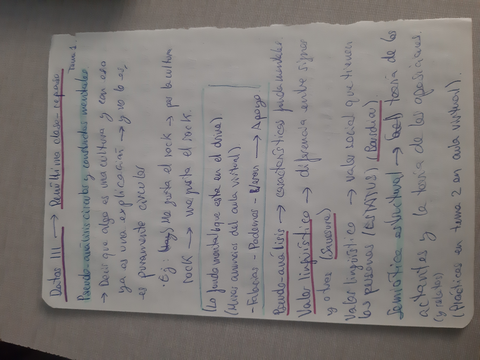 Datos III → Penúltima clase - repaso
Tema 1
Pseudo-análisis circular y conductas mentales
→ Decir que algo es una cultura y con eso
ya es una explicación → y no lo es,
es puramente circular
Ej: Me gusta el rock → por la cultura
rock → me gusta el rock.
(Lo fundamental que está en el drive)
(Mirar anuncios del aula virtual)
- Falacias - Podemos - → Apoyo
Pseudo-análisis → características fundamentales
Valor lingüístico → diferencia entre signos
y otros (Saussure)
Valor lingüístico → valor social que tienen
las personas (ESTATUS) (Bourdieu)
Semiótica estructural → teoría de los
actantes y la teoría de las oposiciones.
(y relatos)
(Prácticas en tema 2 en aula virtual)